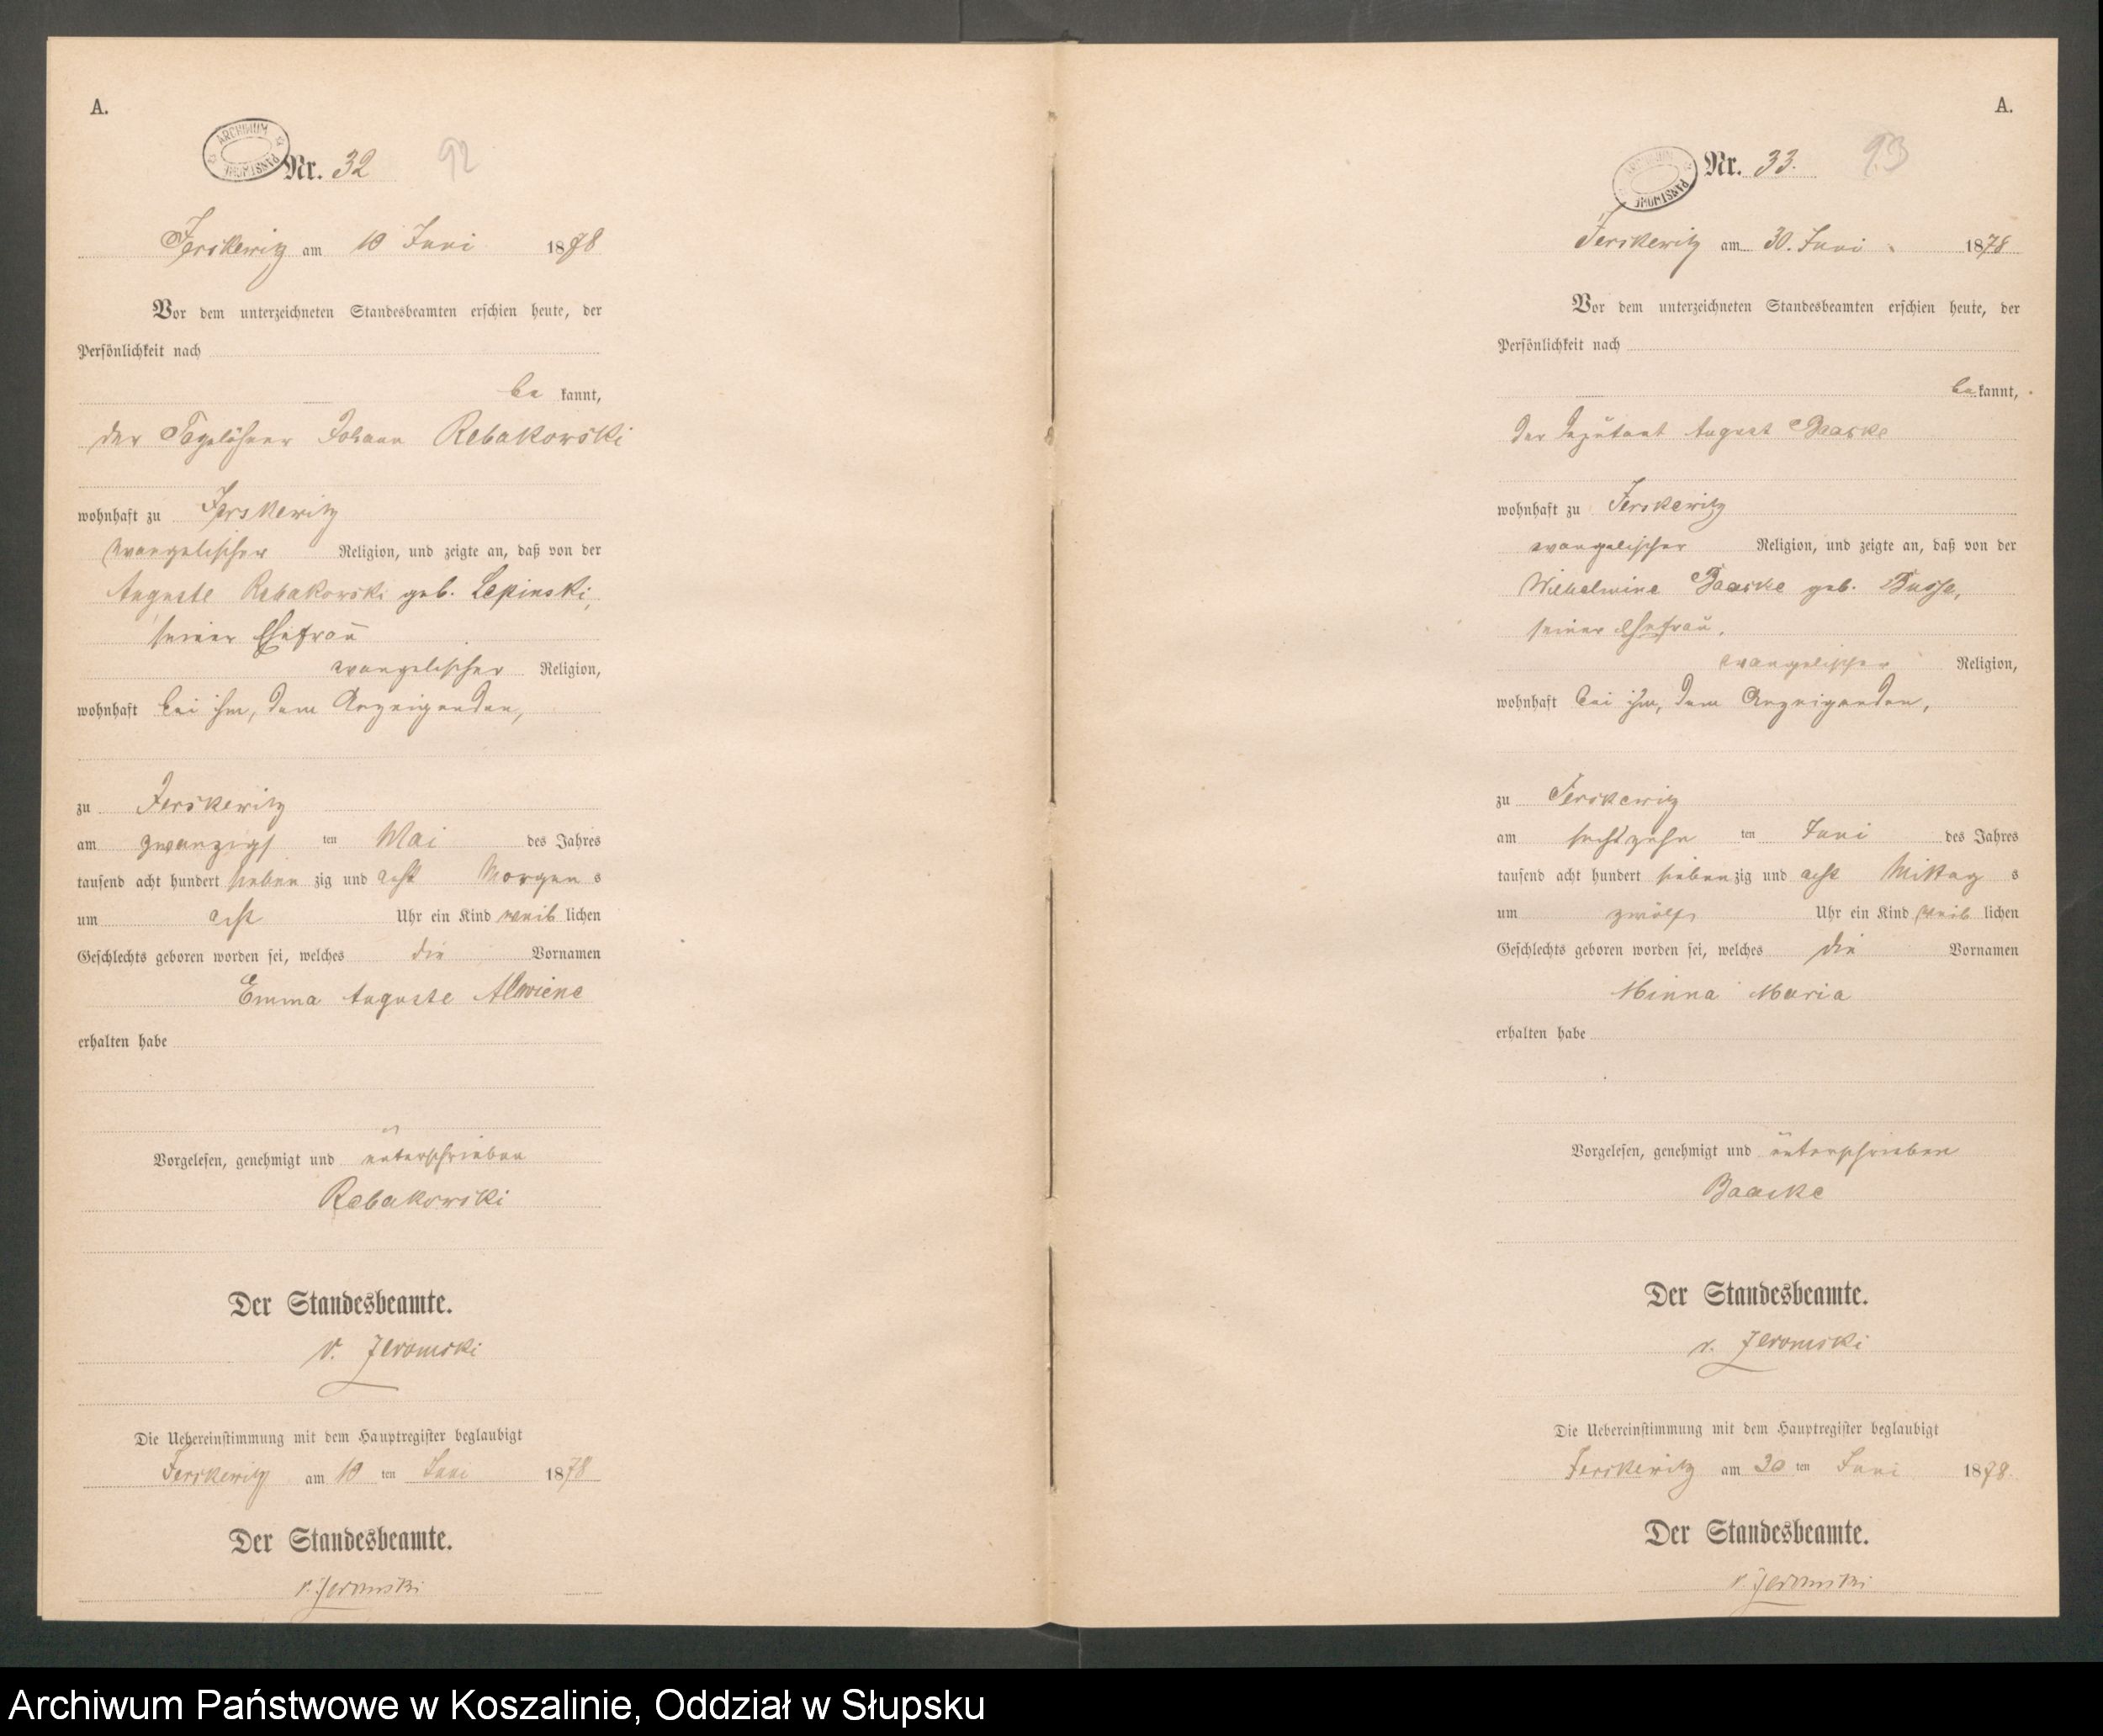 A.
ARCHIWUM PAŃSTWOWE
Nr. 32
92
Jerskewitz am 10 Juni 1878
Vor dem unterzeichneten Standesbeamten erschien heute, der
Persönlichkeit nach
be kannt,
der Tagelöhner Johann Rebakowski
wohnhaft zu Jerskewitz
evangelischer Religion, und zeigte an, daß von der
Auguste Rebakowski geb. Lepinski,
seiner Ehefrau
evangelischer Religion,
wohnhaft bei ihm, dem Anzeigenden,
zu Jerskewitz
am zwanzigs ten Mai des Jahres
tausend acht hundert sieben zig und acht Morgen s
um acht Uhr ein Kind weib lichen
Geschlechts geboren worden sei, welches die Vornamen
Emma Auguste Alwiene
erhalten habe
Vorgelesen, genehmigt und unterschrieben
Rebakowski
Der Standesbeamte.
v. Jeromski
Die Uebereinstimmung mit dem Hauptregister beglaubigt
Jerskewitz am 10 ten Juni 1878
Der Standesbeamte.
v. Jeromski
A.
ARCHIWUM PAŃSTWOWE
Nr. 33.
93
Jerskewitz am 30. Juni 1878
Vor dem unterzeichneten Standesbeamten erschien heute, der
Persönlichkeit nach
be kannt,
der Deputant August Baaske
wohnhaft zu Jerskewitz
evangelischer Religion, und zeigte an, daß von der
Wilhelmine Baaske geb. Busse,
seiner Ehefrau,
evangelischer Religion,
wohnhaft bei ihm, dem Anzeigenden,
zu Jerskewitz
am sechszehn ten Juni des Jahres
tausend acht hundert sieben zig und acht Mittag s
um zwölf Uhr ein Kind weib lichen
Geschlechts geboren worden sei, welches die Vornamen
Minna Maria
erhalten habe
Vorgelesen, genehmigt und unterschrieben
Baaske
Der Standesbeamte.
v. Jeromski
Die Uebereinstimmung mit dem Hauptregister beglaubigt
Jerskewitz am 30 ten Juni 1878
Der Standesbeamte.
v. Jeromski
Archiwum Państwowe w Koszalinie, Oddział w Słupsku